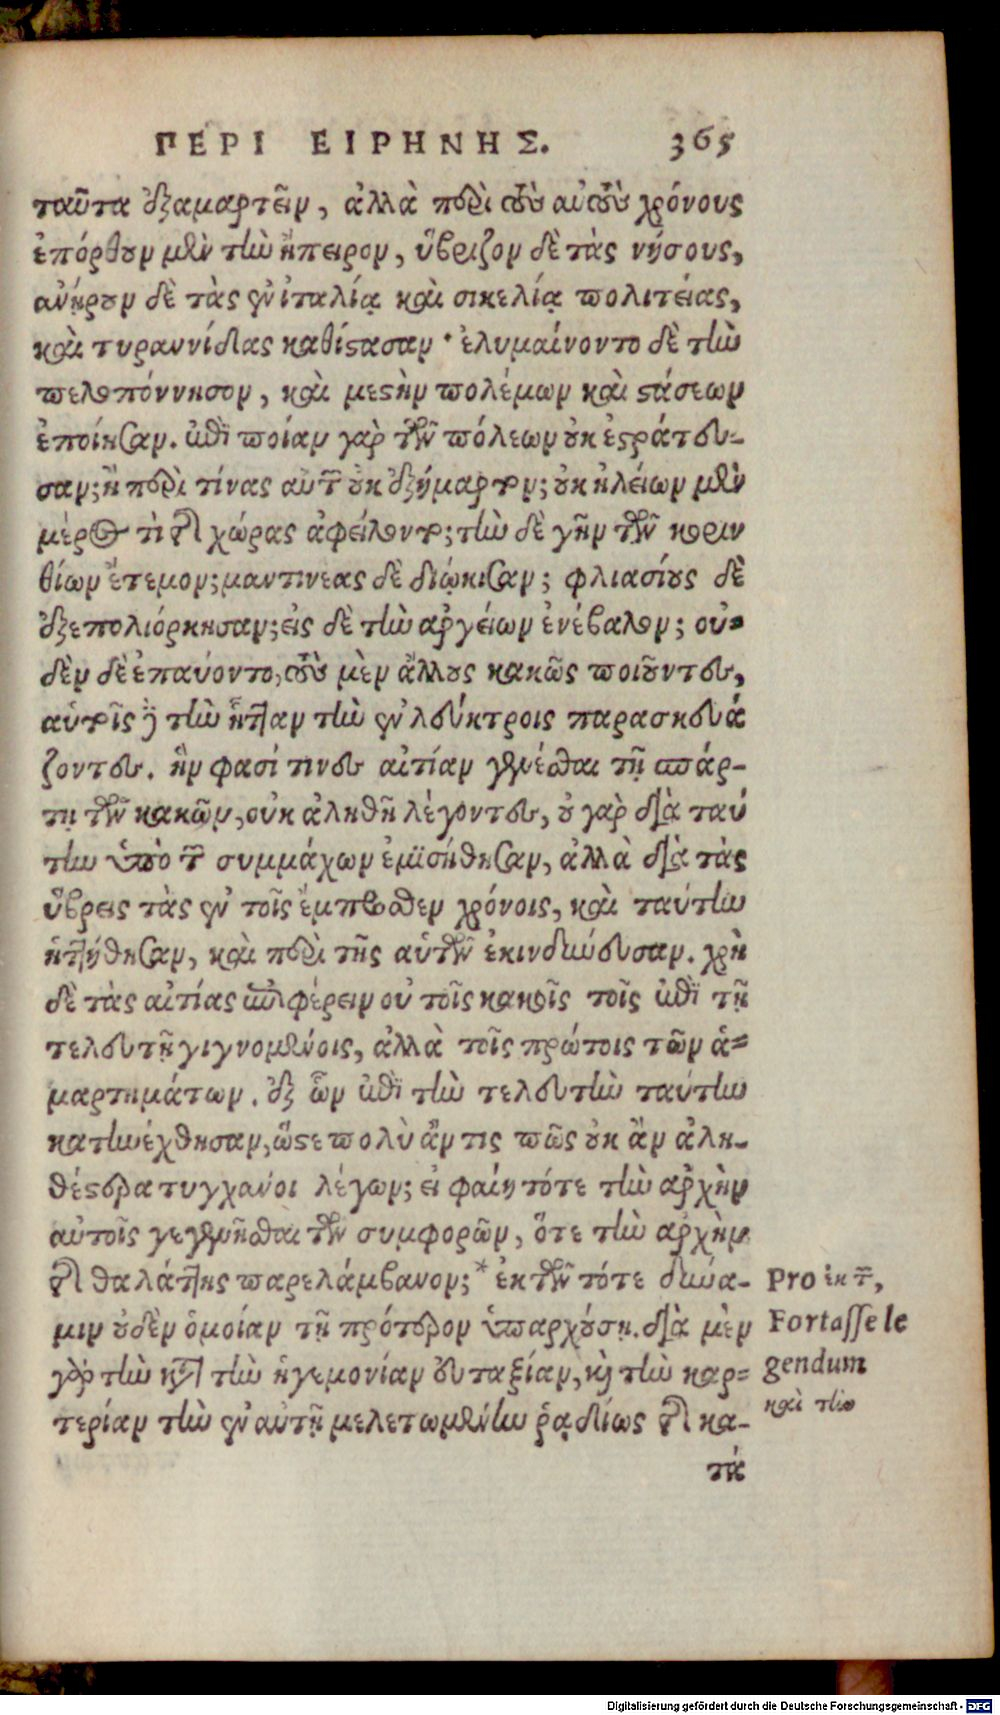 ΠΕΡΙ ΕΙΡΗΝΗΣ. 365
ταῦτα ἐξαμαρτεῖν, ἀλλὰ περὶ τοὺς αὐτοὺς χρόνους
ἐπόρθουν μὲν τὴν ἤπειρον, ὕβριζον δὲ τὰς νήσους,
ἀνῄρουν δὲ τὰς ἐν ἰταλίᾳ καὶ σικελίᾳ πολιτείας,
καὶ τυραννίδας καθίστασαν· ἐλυμαίνοντο δὲ τὴν
πελοπόννησον, καὶ μεστὴν πολέμων καὶ στάσεων
ἐποίησαν. ἐπὶ ποίαν γὰρ τῶν πόλεων οὐκ ἐστράτευ-
σαν; ἢ περὶ τίνας αὐτῶν οὐκ ἐξήμαρτον; οὐκ ἠλείων μὲν
μέρος τὶ τῆς χώρας ἀφείλοντο; τὴν δὲ γῆν τῶν κοριν
θίων ἔτεμον; μαντινέας δὲ διῴκισαν; φλιασίους δὲ
ἐξεπολιόρκησαν; εἰς δὲ τὴν ἀργείων ἐνέβαλον; οὐ-
δὲν δὲ ἐπαύοντο, τοὺς μὲν ἄλλους κακῶς ποιοῦντες,
αὑτοῖς δὲ τὴν ἧτταν τὴν ἐν λεύκτροις παρασκευά
ζοντες. ἥν φασί τινες αἰτίαν γεγενῆσθαι τῇ σπάρ-
τῃ τῶν κακῶν, οὐκ ἀληθῆ λέγοντες, οὐ γὰρ διὰ ταύ
την ὑπὸ τῶν συμμάχων ἐμισήθησαν, ἀλλὰ διὰ τὰς
ὕβρεις τὰς ἐν τοῖς ἔμπροσθεν χρόνοις, καὶ ταύτην
ἡττήθησαν, καὶ περὶ τῆς αὑτῶν ἐκινδύνευσαν. χρὴ
δὲ τὰς αἰτίας ἐπιφέρειν οὐ τοῖς κακοῖς τοῖς ἐπὶ τῇ
τελευτῇ γιγνομένοις, ἀλλὰ τοῖς πρώτοις τῶν ἁ-
μαρτημάτων. ἐξ ὧν ἐπὶ τὴν τελευτὴν ταύτην
κατηνέχθησαν, ὥστε πολὺ ἄν τις πῶς οὐκ ἂν ἀλη-
θέστερα τυγχάνοι λέγων; εἰ φαίη τότε τὴν ἀρχὴν
αὐτοῖς γεγενῆσθαι τῶν συμφορῶν, ὅτε τὴν ἀρχὴν
τῆς θαλάττης παρελάμβανον; * ἐκ τῶν τότε δύνα-
μιν οὐδὲν ὁμοίαν τῇ πρότερον ὑπαρχούσῃ. διὰ μὲν
γὰρ τὴν κατὰ τὴν ἡγεμονίαν εὐταξίαν, καὶ τὴν καρ-
τερίαν τὴν ἐν αὐτῇ μελετωμένην ῥᾳδίως τῆς κα-
τὰ
Pro ἐκ τῶν,
Fortasse le
gendum
καὶ τὴν
Digitalisierung gefördert durch die Deutsche Forschungsgemeinschaft - DFG